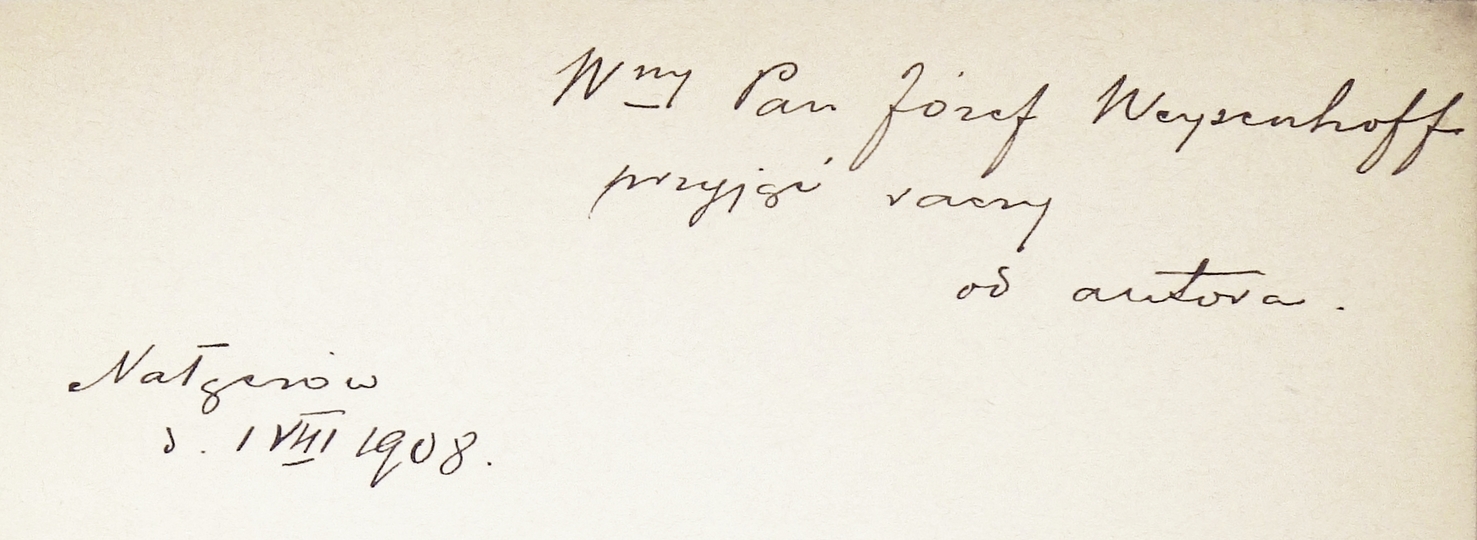 Wny Pan Józef Weysenhoff
przyjąć raczy
od autora.
Nałęczów
d. 1 VIII 1908.